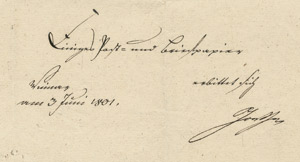 Einiges Post- und Briefpapier
erbittet sich
Weimar
am 3 Juni 1801.